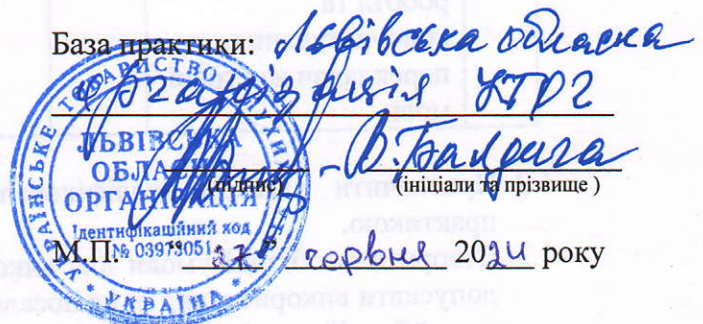 База практики: Львівська обласна
організація УТОГ
В. Балдига
(підпис) (ініціали та прізвище )
М.П. "27" червня 2024 року
УКРАЇНСЬКЕ ТОВАРИСТВО
УКРАЇНА
ЛЬВІВСЬКА
ОБЛАСНА
ОРГАНІЗАЦІЯ
Ідентифікаційний код
№ 03973051